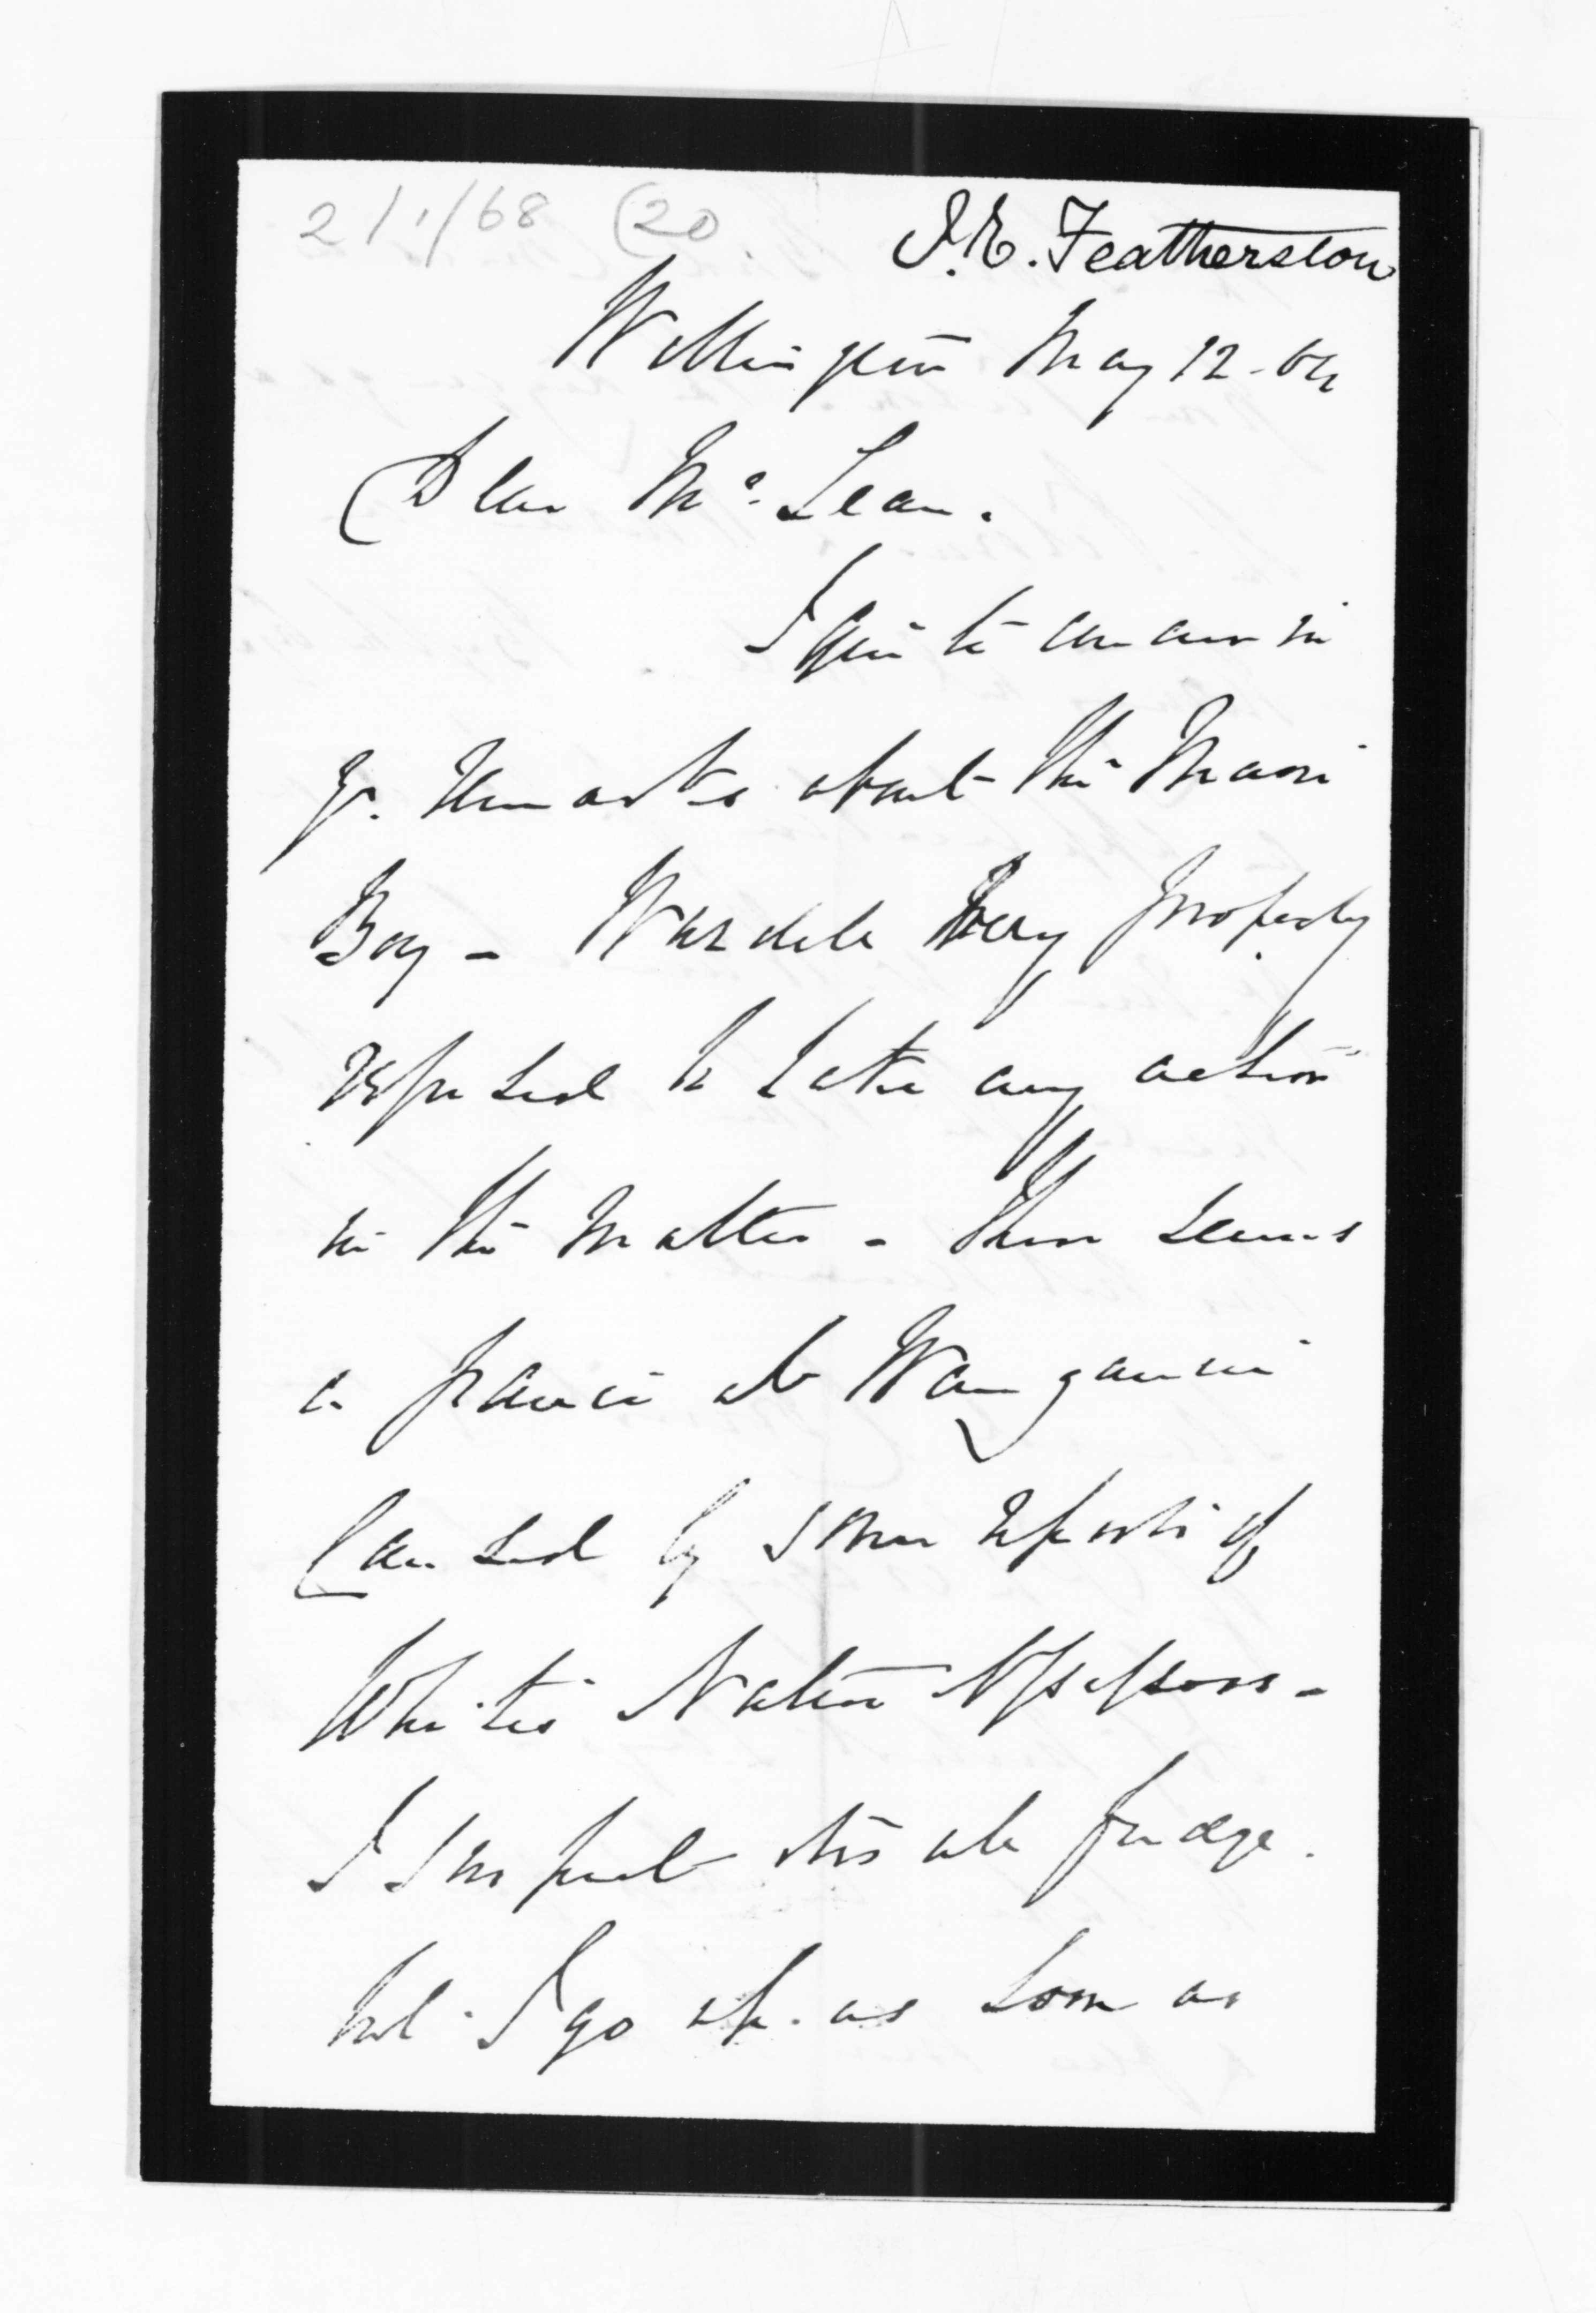 2/1/68 (20
I.E. Featherston
Wellington May 12 - 64
Dear McLean.
I quite concur in
yr. remarks about the Maori
Boy - Wardell very properly
refused to take any action
in the matter - There seems
a panic at Wanganui
Caused by some reports of
White's Native Assessors -
I suspect its all fudge.
but I go up as soon as